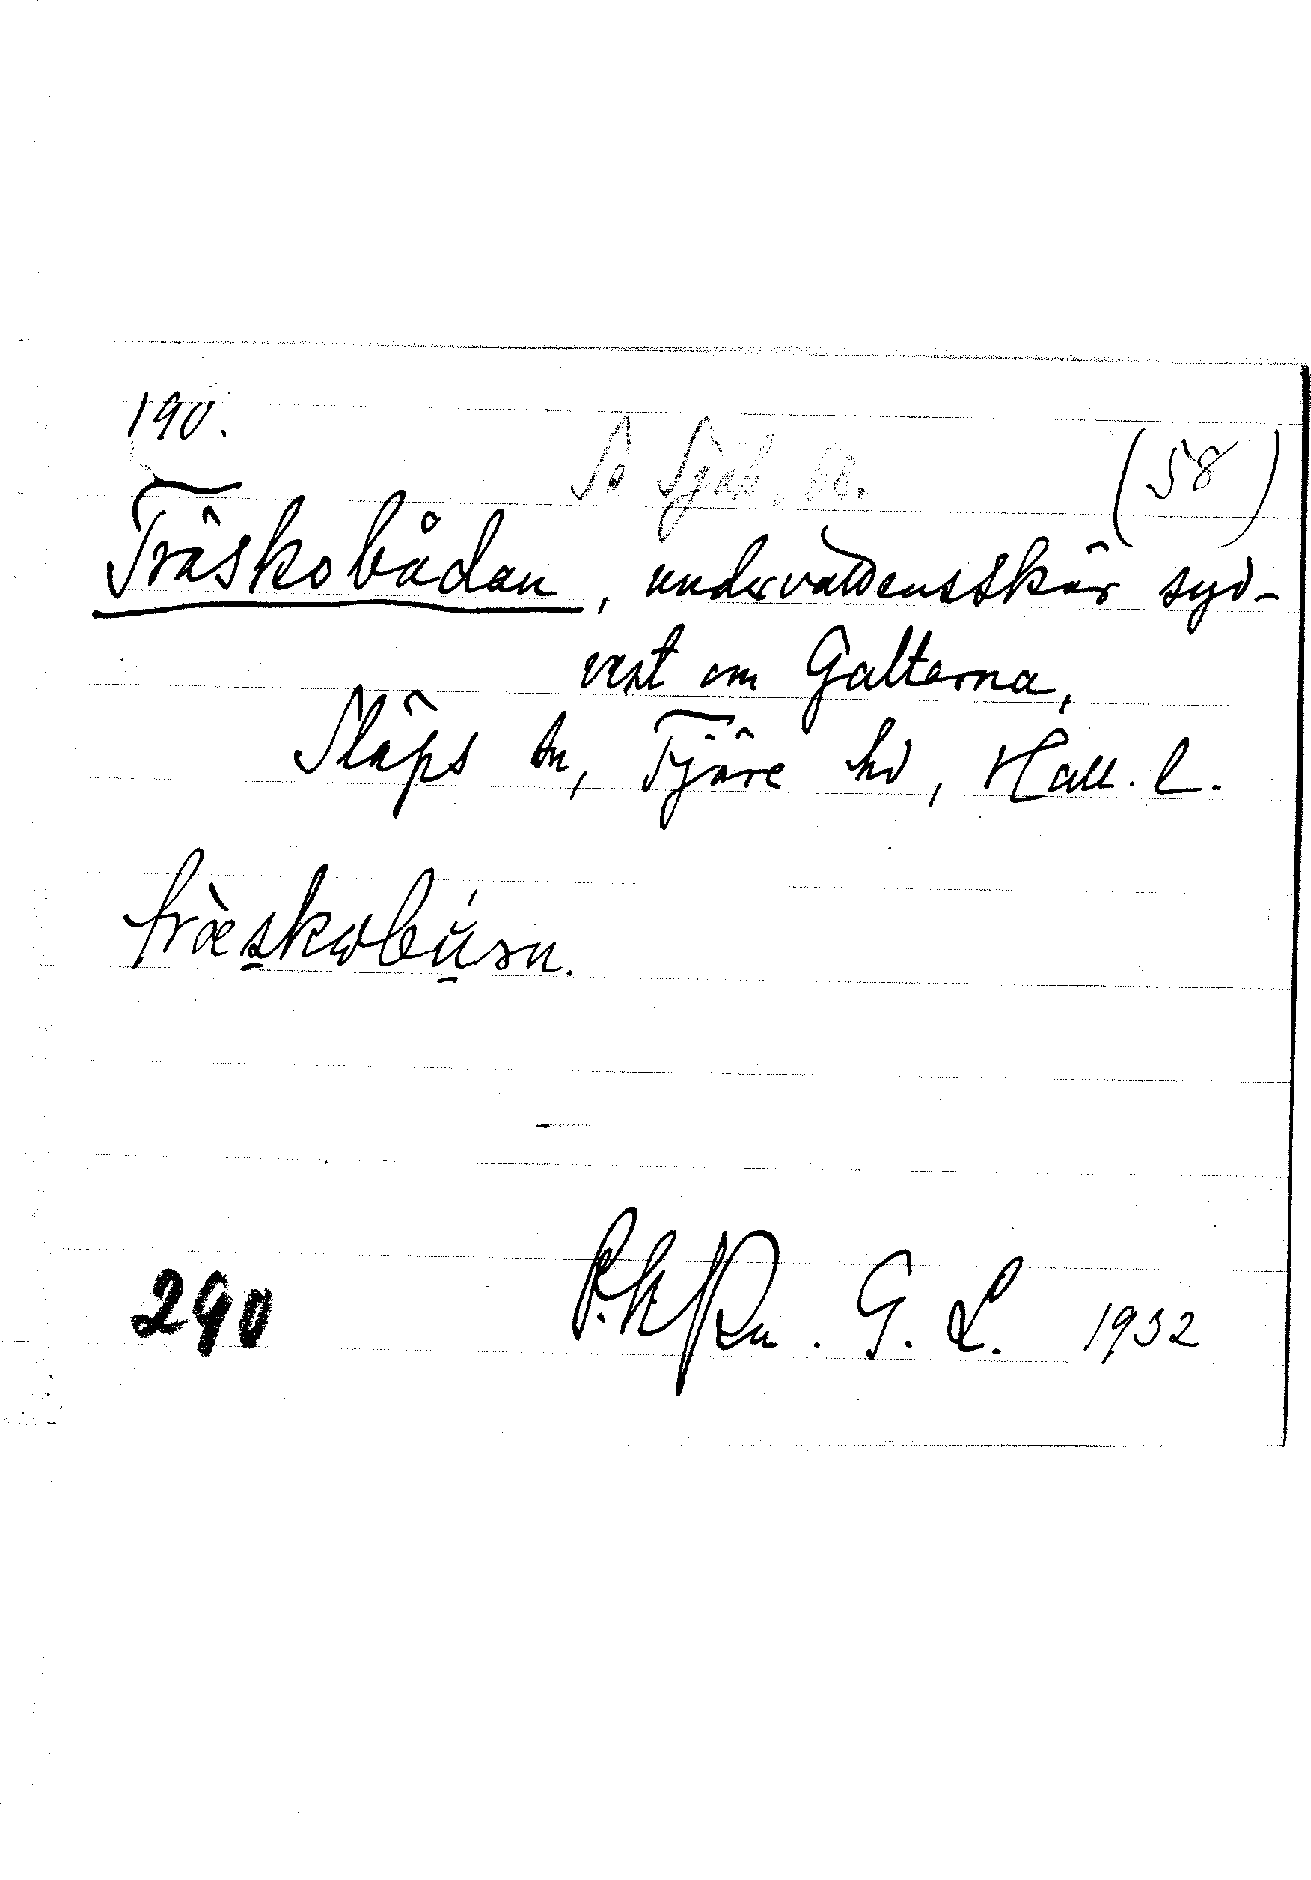 190.
So Sjök. 88. (58)
Träskobådan, undervattensskär syd-
vest om Galterna,
Släps sn, Fjäre hd, Hall. l.
træskobu̇sn.
290 G. L. 1932